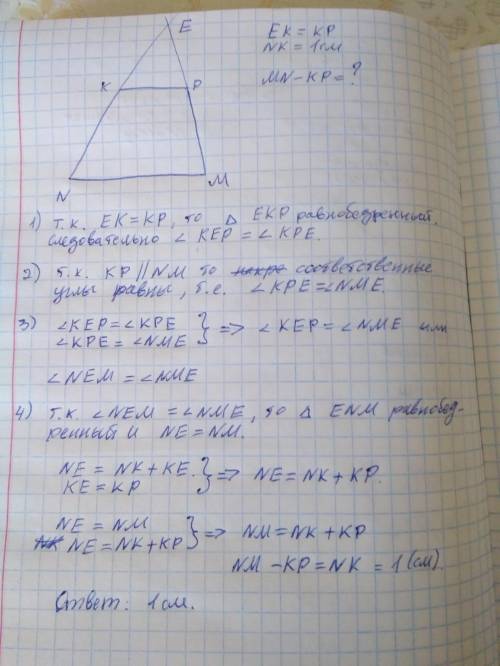 E
EK = KP
NK = 1см
MN - KP = ?
K
P
N
M
1) т.к. EK = KP, то Δ EKP равнобедренный.
следовательно ∠ KEP = ∠ KPE.
2) т.к. KP || NM то соответственные
углы равны, т.е. ∠ KPE = ∠NME.
3) ∠KEP = ∠KPE
∠KPE = ∠NME } => ∠ KEP = ∠NME или
∠NEM = ∠NME
4) т.к. ∠NEM = ∠NME, то Δ ENM равнобед-
ренный и NE = NM.
NE = NK + KE.
KE = KP } => NE = NK + KP.
NE = NM
NE = NK + KP } => NM = NK + KP
NM - KP = NK = 1 (см)
Ответ: 1 см.